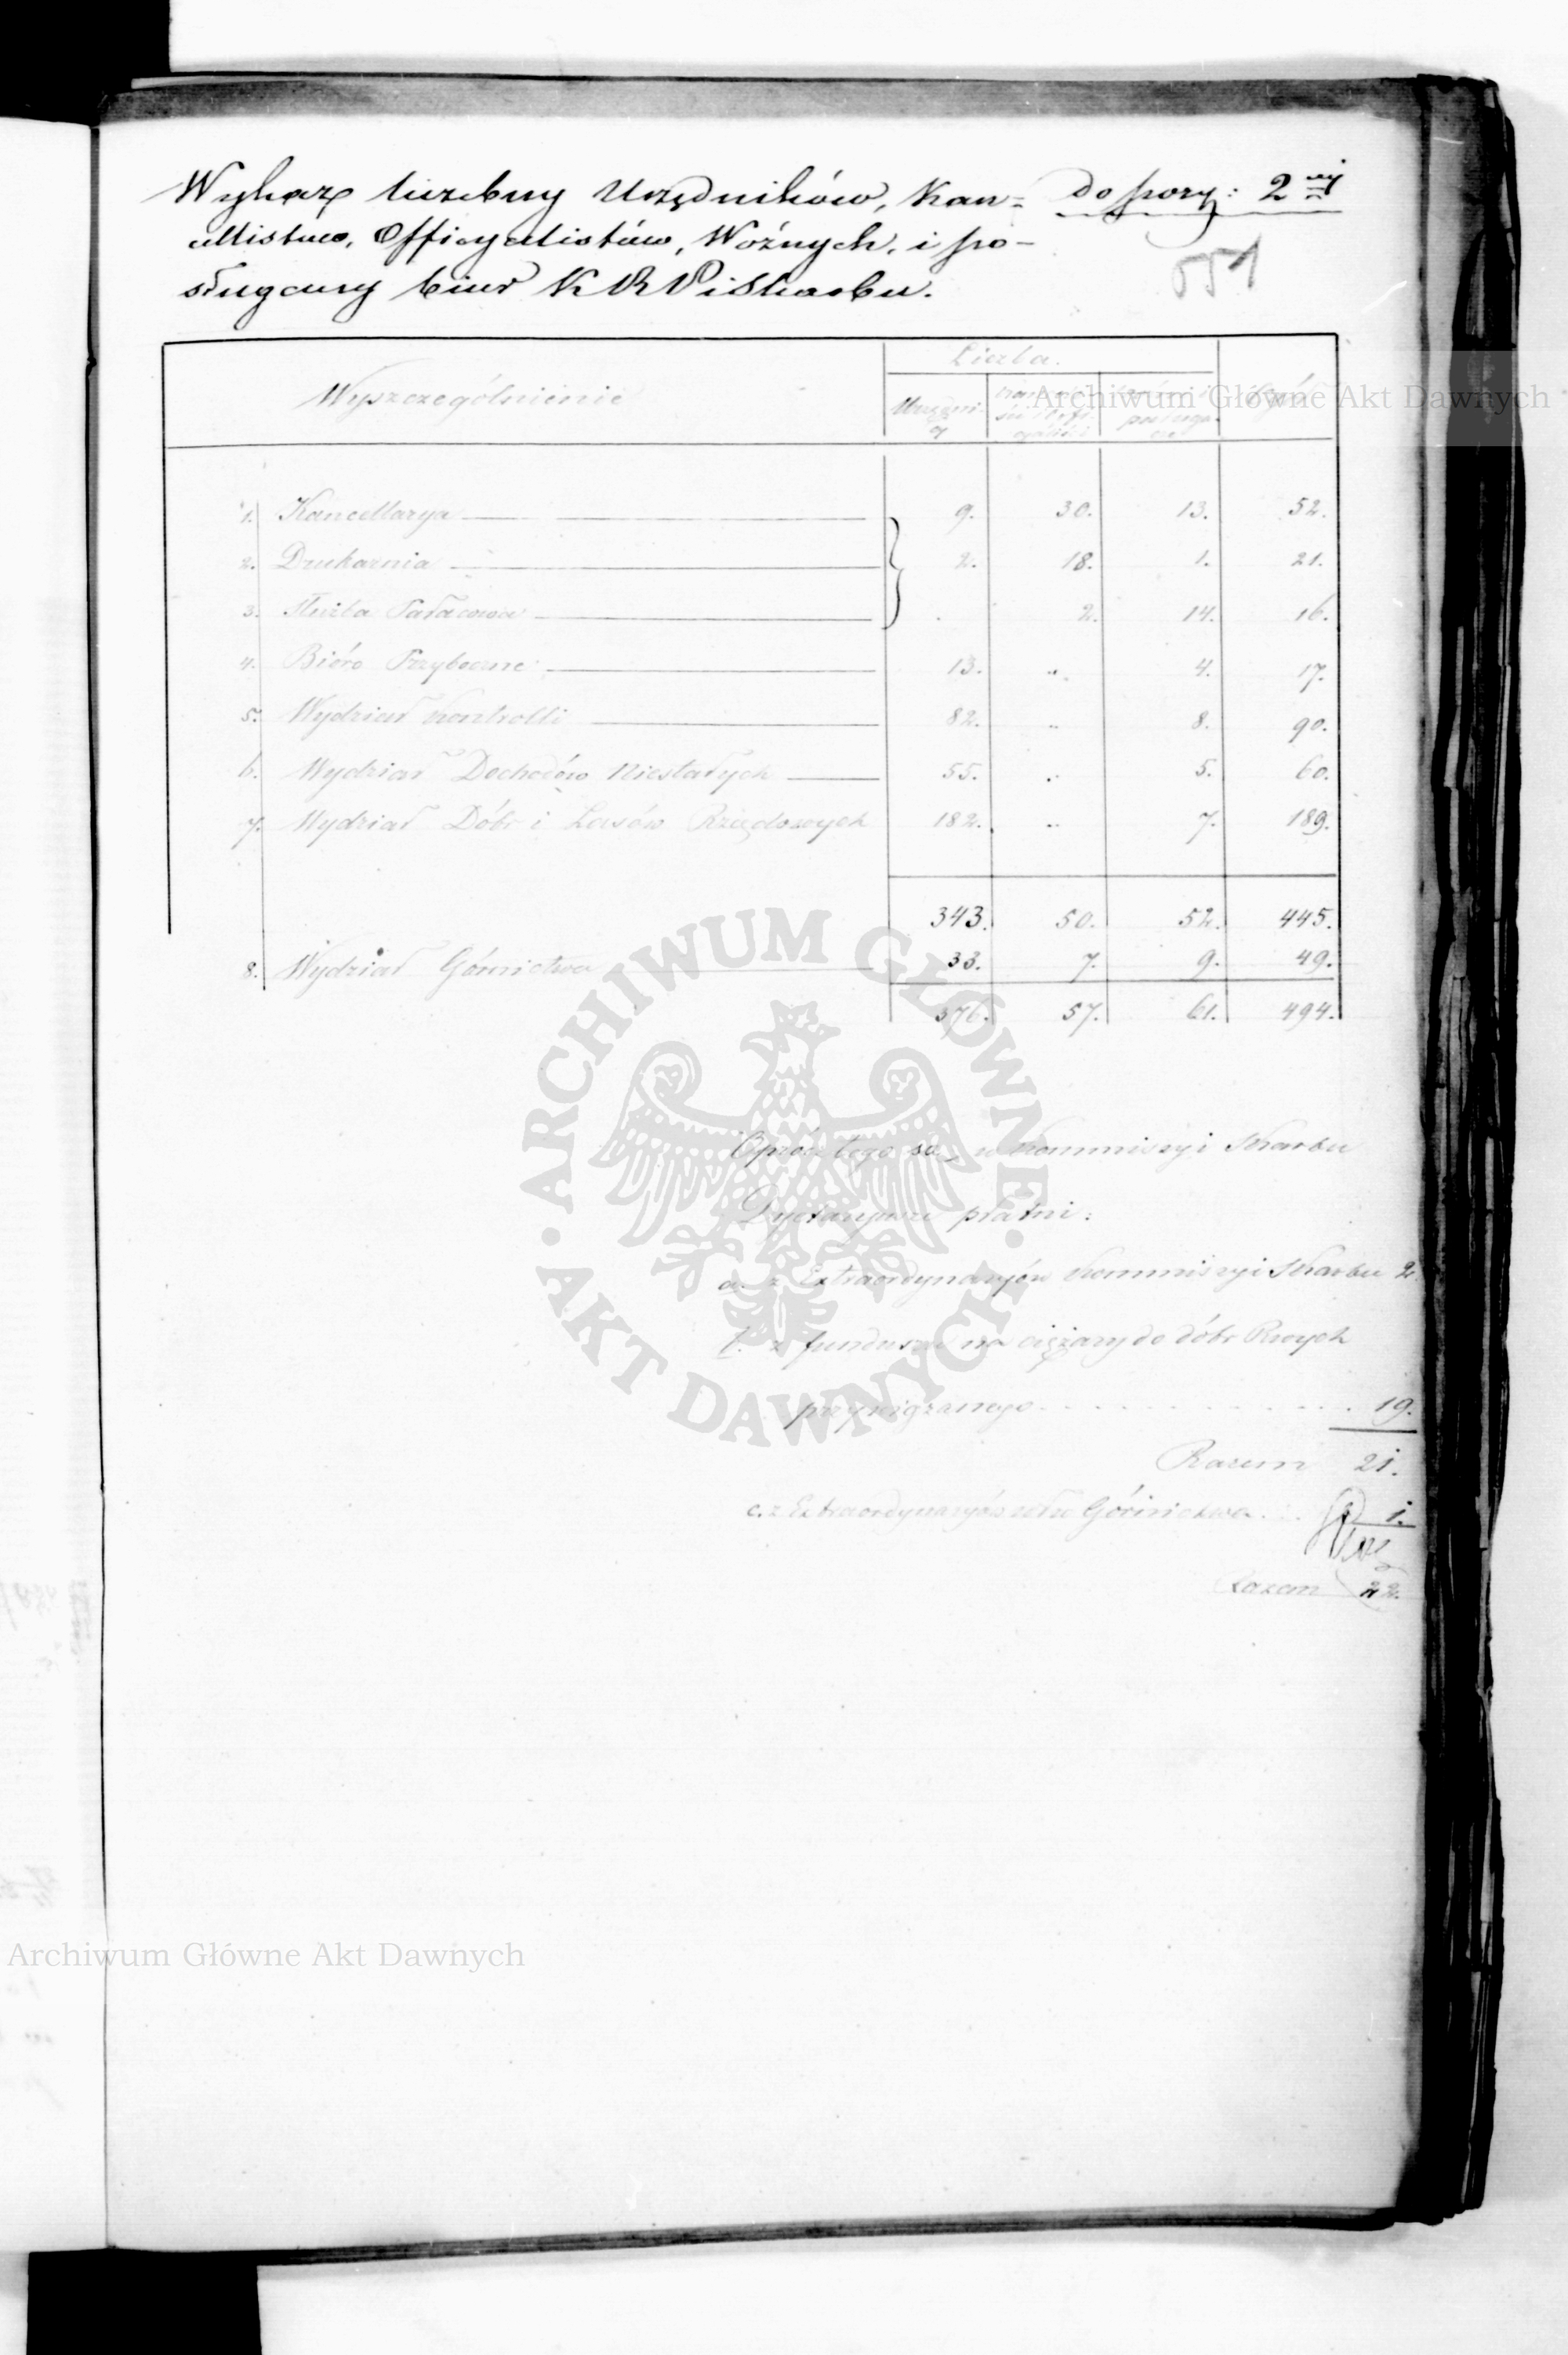 Wykaz liczebny Urzędników, Kan= do pozy: 2 ej
cellistów, Officyalistów, Woźnych, i po-
sługaczy biur K R P i Skarbu.
551
Liczba.
Wyszczególnienie Urzędni-
cy posługa-
cze Ogół
Archiwum Główne Akt Dawnych
1. Kancellarya 9. 30. 13. 52.
2. Drukarnia 2. 18. 1. 21.
3. Służba Pałacowa . 2. 14. 16.
4. Bióro Przyboczne 13. „ 4. 17.
5. Wydział Kontrolli 82. „ 8. 90.
6. Wydział Dochodów Niestałych 55. „ 5. 60.
7. Wydział Dóbr i Lasów Rządowych 182. „ 7. 189.
343. 50. 52. 445.
8. Wydział Górnictwa 33. 7. 9. 49.
376. 57. 61. 494.
ARCHIWUM GŁÓWNE
AKT DAWNYCH
Oprócz tego są w Kommissyi Skarbu
Dyetaryusze płatni:
a. z Extraordynaryów Kommissyi Skarbu 2.
b. z funduszu na ciężary do dóbr Rwych
przywiązanego . . . . . . . . . . . 19.
Razem 21.
c. z Extraordynaryów Górnictwa . . . 1.
Razem 22.
Archiwum Główne Akt Dawnych